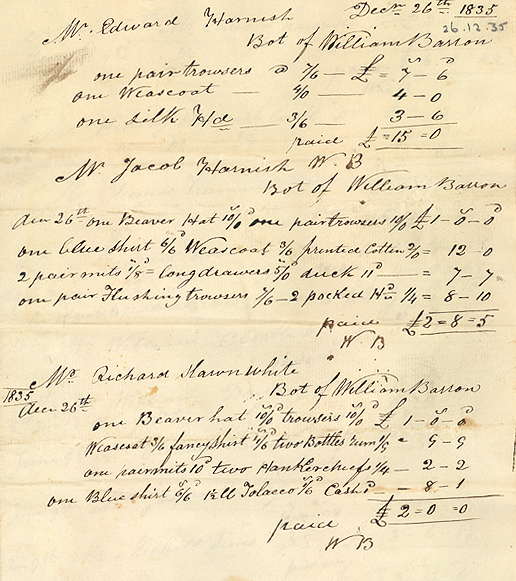 Mr. Edward Harnish Decr 26th 1835
26.12.35
Bot of William Barron
one pair trowsers @ 7/6 — £ = 7 - 6
one Weascoat — 4/0 — 4 - 0
one Silk Hd — 3/6 — 3 - 6
paid £ = 15 = 0
Mr Jacob Harnish W. B
Bot of William Barron
26th one Beaver Hat 10/0 one pair trowsers 10/0 £ 1 - 0 - 0
one blue shirt 6/6 Weascoat 3/6 printed Cotten 2/0 = 12 - 0
2 pair mits 1/8 = long drawers 5/0 duck 11d — = 7 - 7
one pair Flushing trowsers 7/6 - 2 pocked Hd 1/4 = 8 - 10
paid £2 = 8 = 5
W B
Mr Richard Hawnwhite
1835
26th Bot of William Barron
one Beaver hat 10/0 trowsers 10/0 £ 1 - 0 - 0
Weascoat 3/6 fancy shirt 4/6 two Bottles rum = 9 - 9
one pair mits 10d two Hankerchiefs 1/4 — 2 - 2
one Blue shirt 6/6 Tolacco Cash — 8 - 1
paid £ 2 = 0 = 0
W B